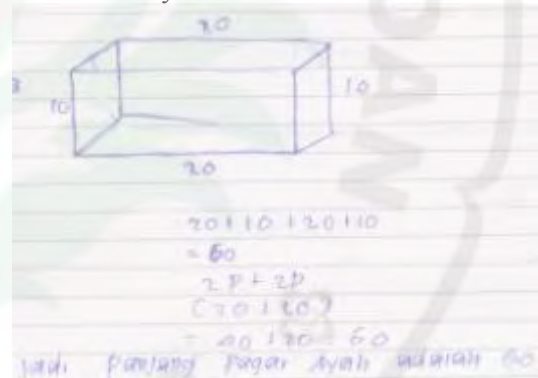 20
10
10
20
20+10+20+10
= 60
2P+2P
(20+20)
= 40+20=60
Jadi Panjang Pagar Ayah adalah 60